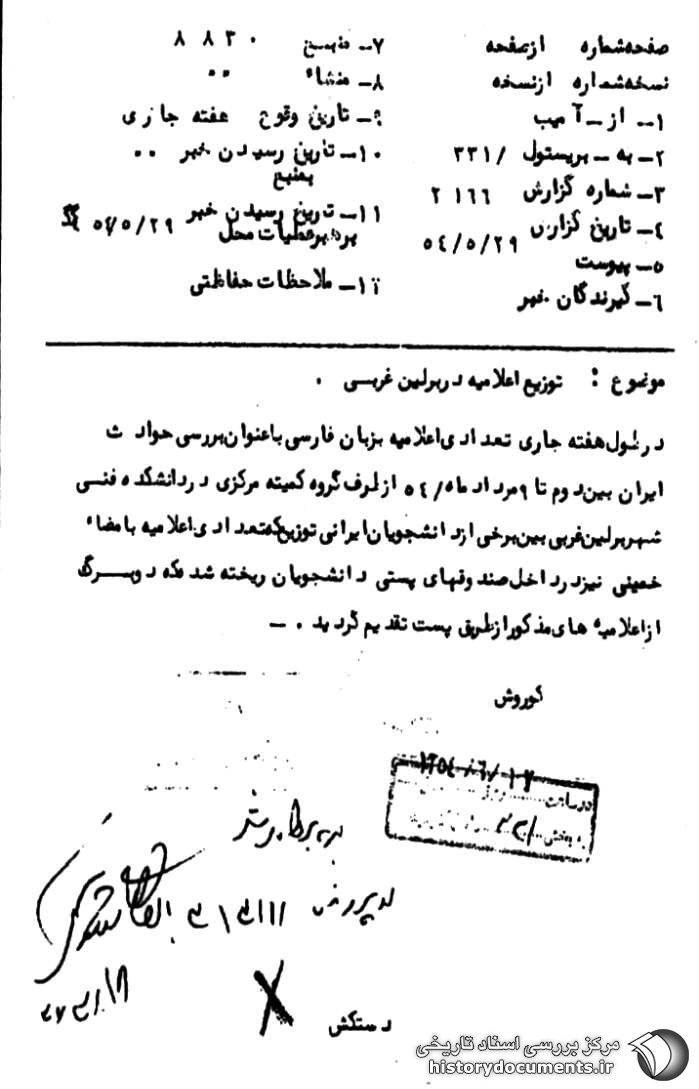 صفحه شماره از صفحه
نسخه شماره از نسخه
۱- از - آ مهب
۲- به - بریستول /۳۳۱
۳- شماره گزارش ۲۱۶۶
۴- تاریخ گزارش ۵۴/۵/۲۹
۵- پیوست
۶- گیرندگان خبر
۷- منبع ۸۸۳۰
۸- منشاء ۰۰
۹- تاریخ وقوع هفته جاری
۱۰- تاریخ رسیدن خبر ۰۰
بمنبع
۱۱- تاریخ رسیدن خبر
برهبر عملیات محل ۵۴/۵/۲۹
۱۲- ملاحظات حفاظتی
موضوع : توزیع اعلامیه در برلین غربی .
در طول هفته جاری تعدادی اعلامیه بزبان فارسی با عنوان بررسی حوادث
ایران بین دوم تا ۹ مرداد ماه ۵۴/ از طرف گروه کمیته مرکزی در دانشکده فنی
شهر برلین غربی بین برخی از دانشجویان ایرانی توزیع که تعدادی اعلامیه با مضاء
خمینی نیز در داخل صندوقهای پستی دانشجویان ریخته شده که دو برگ
از اعلامیه های مذکور از طریق پست تقدیم گردید . -
کوروش
۱۳۵۴/۶/۱۷
در ساعت
به بخش ۳۳۱
دستکش
مرکز بررسی اسناد تاریخی
historydocuments.ir